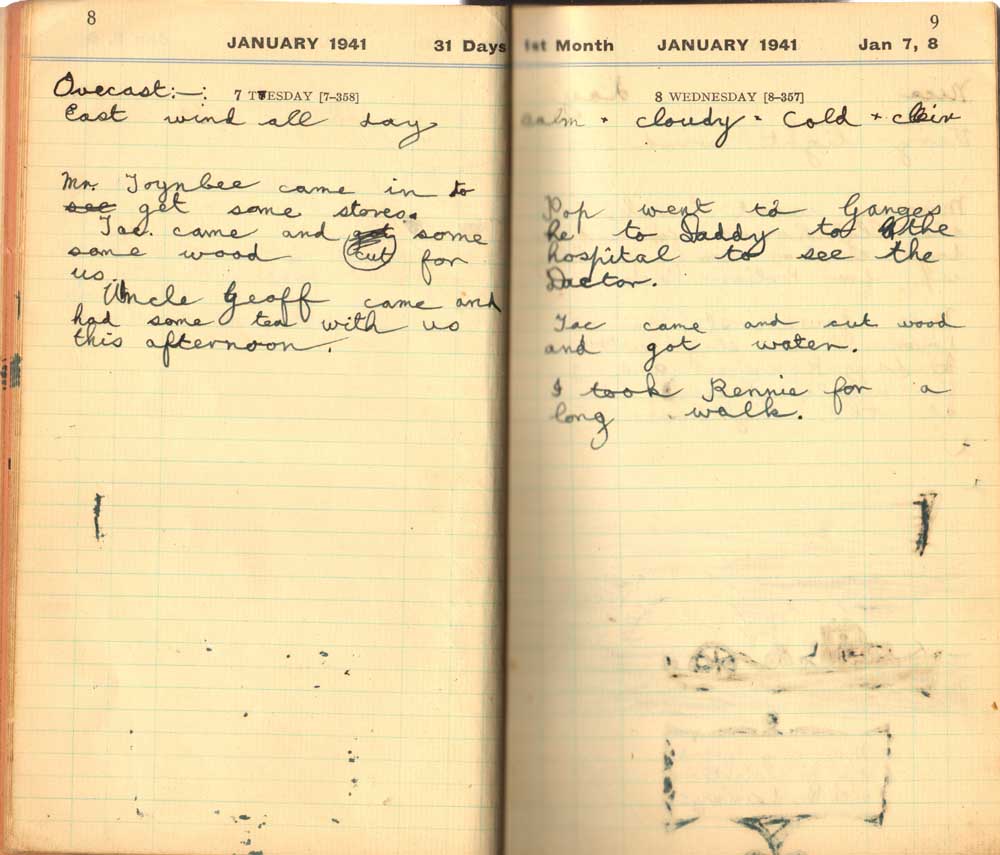 8
JANUARY 1941 31 Days
Ovecast:—:
7 TUESDAY [7–358]
East wind all day
Mr. Toynbee came in to
see get some stores.
Tac. came and got some
some wood cut for
us.
Uncle Geoff came and
had some tea with us
this afternoon.
9
1st Month JANUARY 1941 Jan 7, 8
8 WEDNESDAY [8–357]
calm + cloudy - Cold + clair
Pop went to Ganges
he to Daddy to the
hospital to see the
Doctor.
Tac came and cut wood
and got water.
I took Rennie for a
long walk.